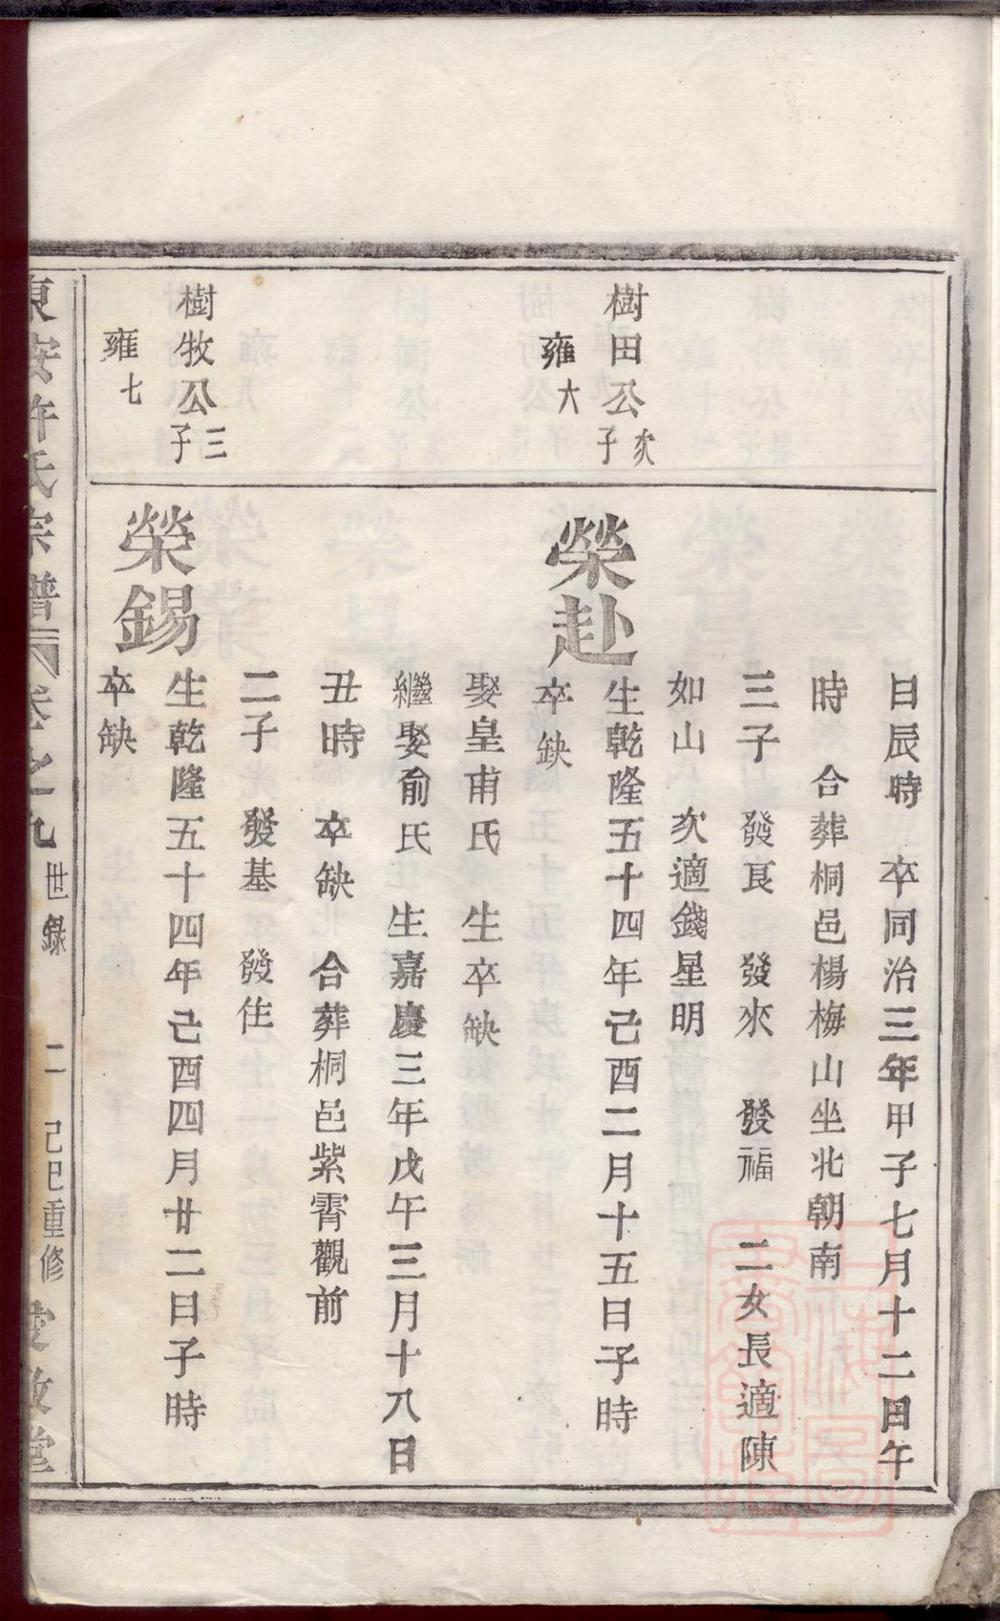 日辰時 卒同治三年甲子七月十二日午
時 合葬桐邑楊梅山坐北朝南
三子 發良 發來 發福 二女長適陳
如山 次適錢星明
樹田公次子
雍六
榮赴
生乾隆五十四年己酉二月十五日子時
卒缺
娶皇甫氏 生卒缺
繼娶俞氏 生嘉慶三年戊午三月十八日
丑時 卒缺 合葬桐邑紫霄觀前
二子 發基 發住
樹牧公三子
雍七
榮錫
生乾隆五十四年己酉四月廿二日子時
卒缺
東安許氏宗譜 卷之九 世錄 二 己巳重修 愛敬堂